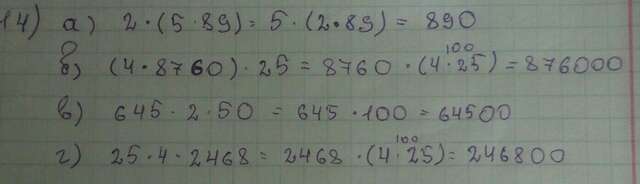 14) а) 2·(5·89) = 5·(2·89) = 890
б) (4·8760)·25 = 8760·(4·25)100 = 876000
в) 645·2·50 = 645·100 = 64500
г) 25·4·2468 = 2468·(4·25)100 = 246800